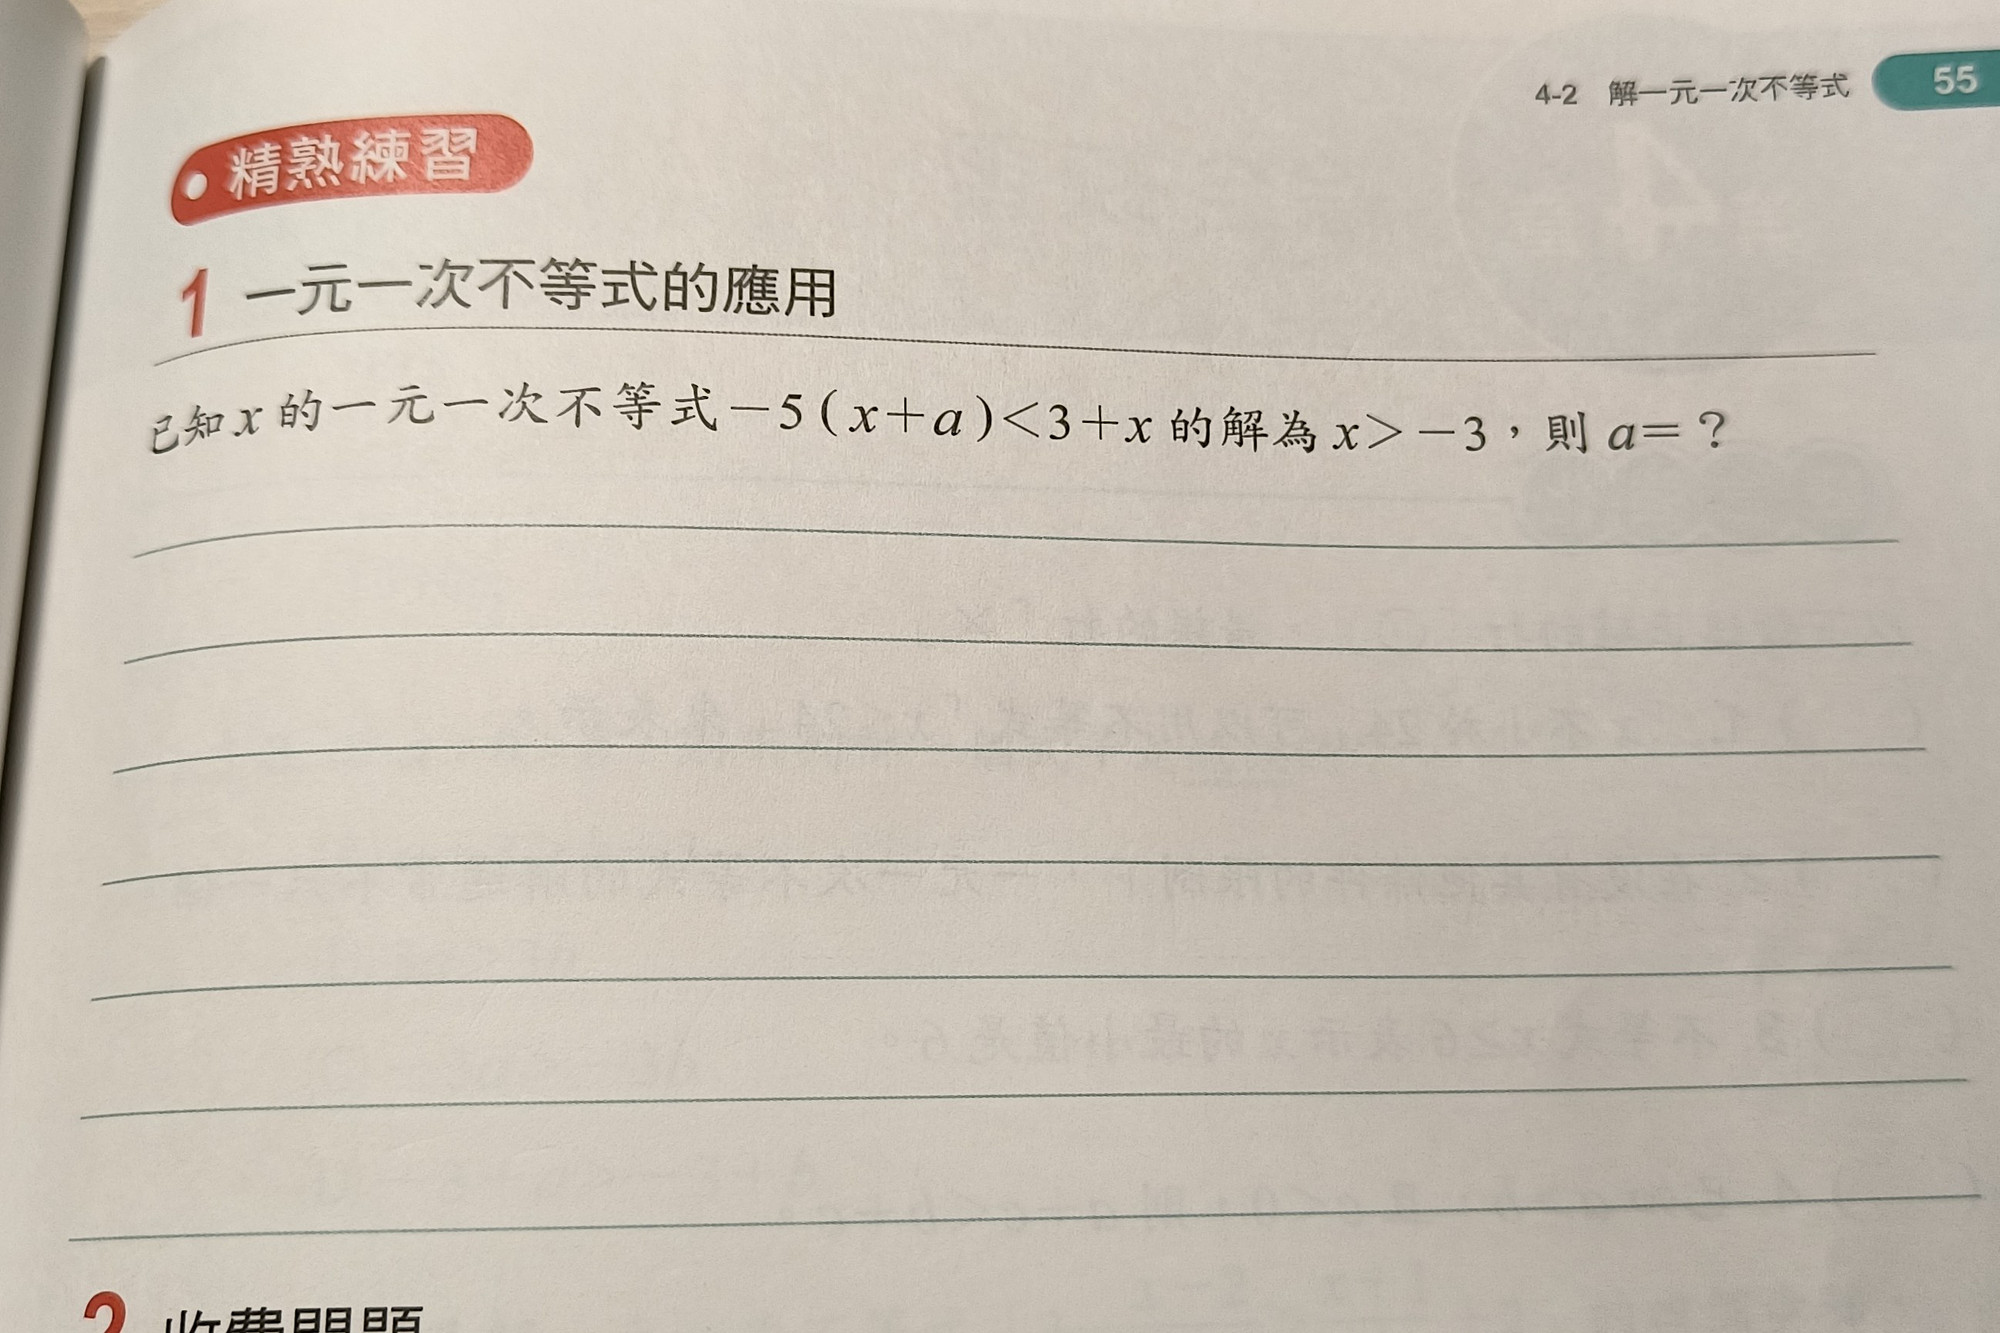 4-2 解一元一次不等式 55
精熟練習
1 一元一次不等式的應用
已知 x 的一元一次不等式 －5（x＋a）＜3＋x 的解為 x＞－3，則 a＝？
2 收費問題